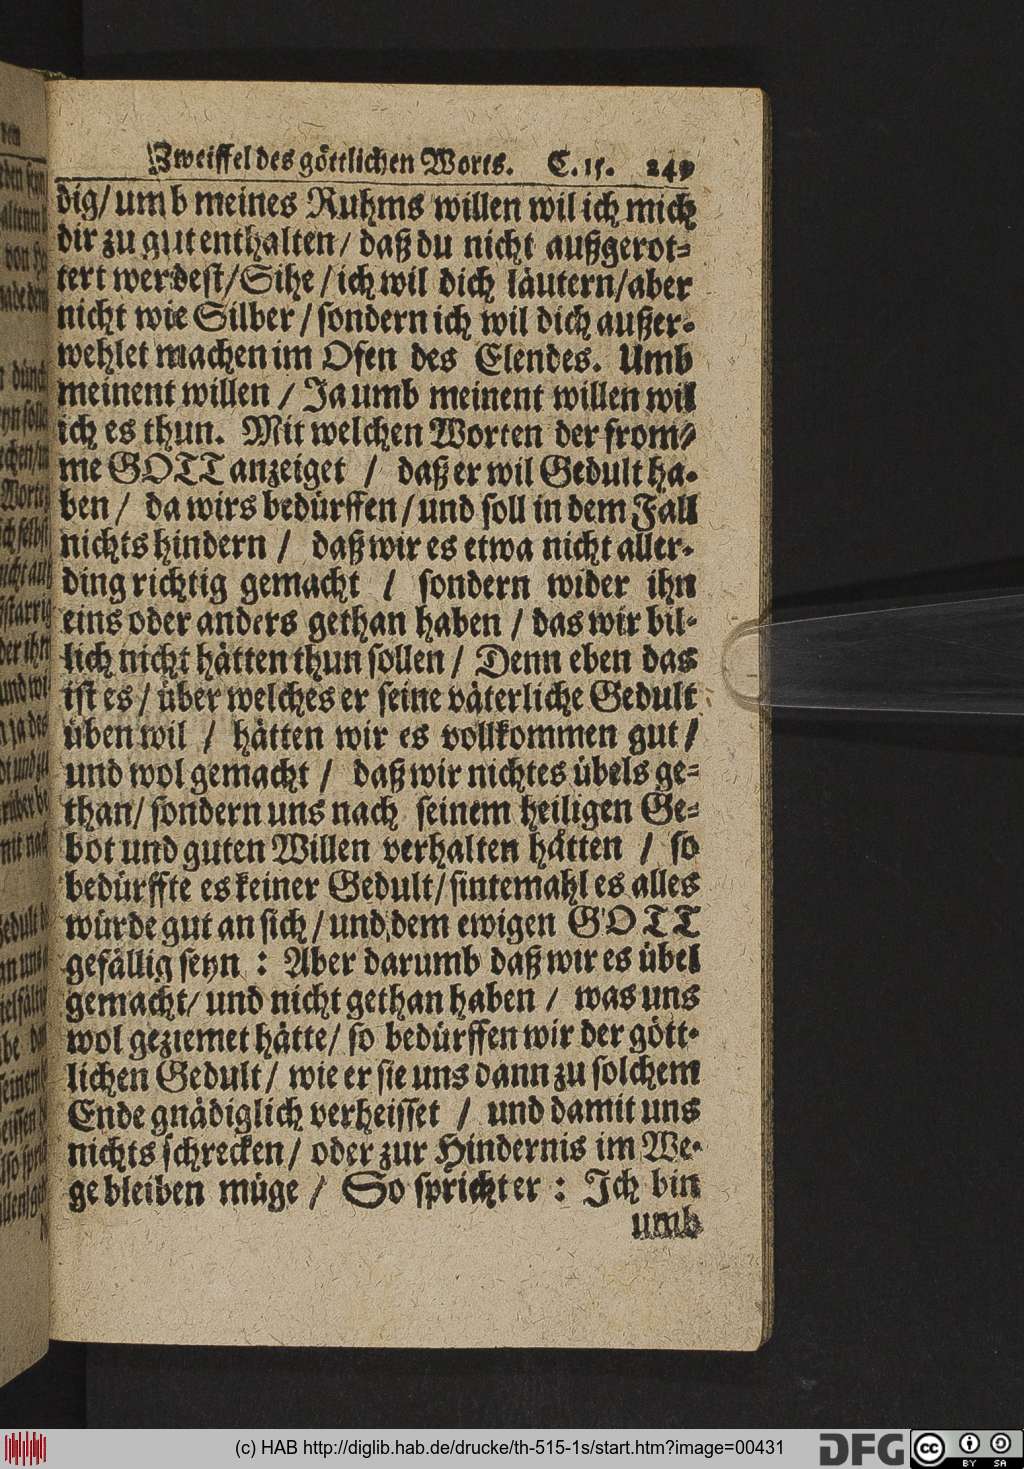 Zweiffel des göttlichen Worts. C. 15. 249
dig/ umb meines Ruhms willen wil ich mich
dir zu gut enthalten/ daß du nicht außgerot-
tert werdest/ Sihe/ ich wil dich läutern/ aber
nicht wie Silber/ sondern ich wil dich außer-
wehlet machen im Ofen des Elendes. Umb
meinent willen/ Ja umb meinent willen wil
ich es thun. Mit welchen Worten der from-
me GOTT anzeiget/ daß er wil Gedult ha-
ben/ da wirs bedürffen/ und soll in dem Fall
nichts hindern/ daß wir es etwa nicht aller-
ding richtig gemacht/ sondern wider ihn
eins oder anders gethan haben/ das wir bil-
lich nicht hätten thun sollen/ Denn eben das
ist es/ über welches er seine väterliche Gedult
üben wil/ hätten wir es vollkommen gut/
und wol gemacht/ daß wir nichtes übels ge-
than/ sondern uns nach seinem heiligen Ge-
bot und guten Willen verhalten hätten/ so
bedürffte es keiner Gedult/ sintemahl es alles
würde gut an sich/ und dem ewigen GOTT
gefällig seyn: Aber darumb daß wir es übel
gemacht/ und nicht gethan haben/ was uns
wol geziemet hätte/ so bedürffen wir der gött-
lichen Gedult/ wie er sie uns dann zu solchem
Ende gnädiglich verheisset/ und damit uns
nichts schrecken/ oder zur Hindernis im We-
ge bleiben müge/ So spricht er: Ich bin
umb
(c) HAB http://diglib.hab.de/drucke/th-515-1s/start.htm?image=00431
DFG
cc BY SA